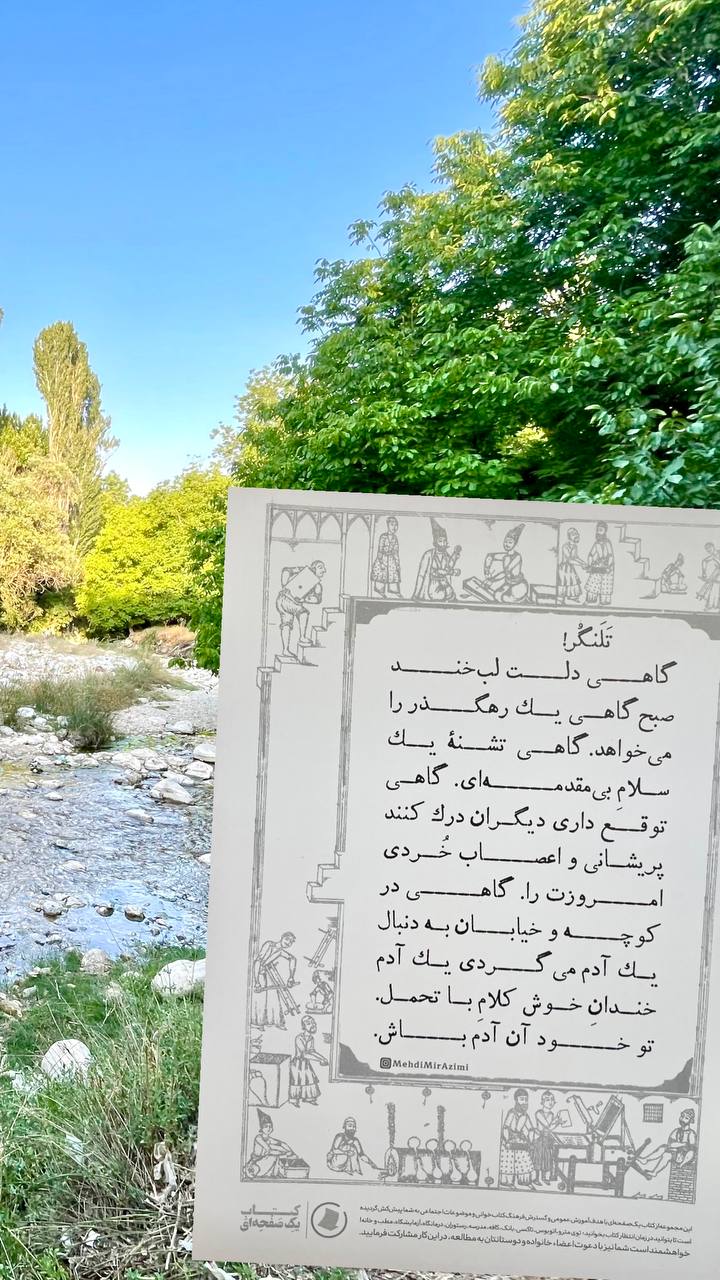 تَلَنگُر!
گاهی دلت لب‌خند
صبح گاهی یك رهگذر را
می‌خواهد. گاهی تشنهٔ یك
سلامِ بی‌مقدمه‌ای. گاهی
توقع داری دیگران درك كنند
پریشانی و اعصاب خُردی
امروزت را. گاهی در
كوچه و خیابان به دنبال
یك آدم می‌گردی یك آدم
خندانِ خوش كلامِ با تحمل.
تو خود آن آدم باش.
MehdiMirAzimi
این مجموعه از کتاب یک صفحه‌ای با هدف آموزش عمومی و گسترش فرهنگ کتاب‌خوانی و موضوعات اجتماعی به شما پیش‌کش گردیده
است تا بتوانید در زمان انتظار کتاب بخوانید، توی مترو، اتوبوس، تاکسی، بانک، کافه، مدرسه، رستوران، درمانگاه، آزمایشگاه، مطب و خانه!
خواهشمند است شما نیز با دعوت اعضاء خانواده و دوستانتان به مطالعه، در این کار مشارکت فرمایید.
کتاب
یک صفحه‌ای